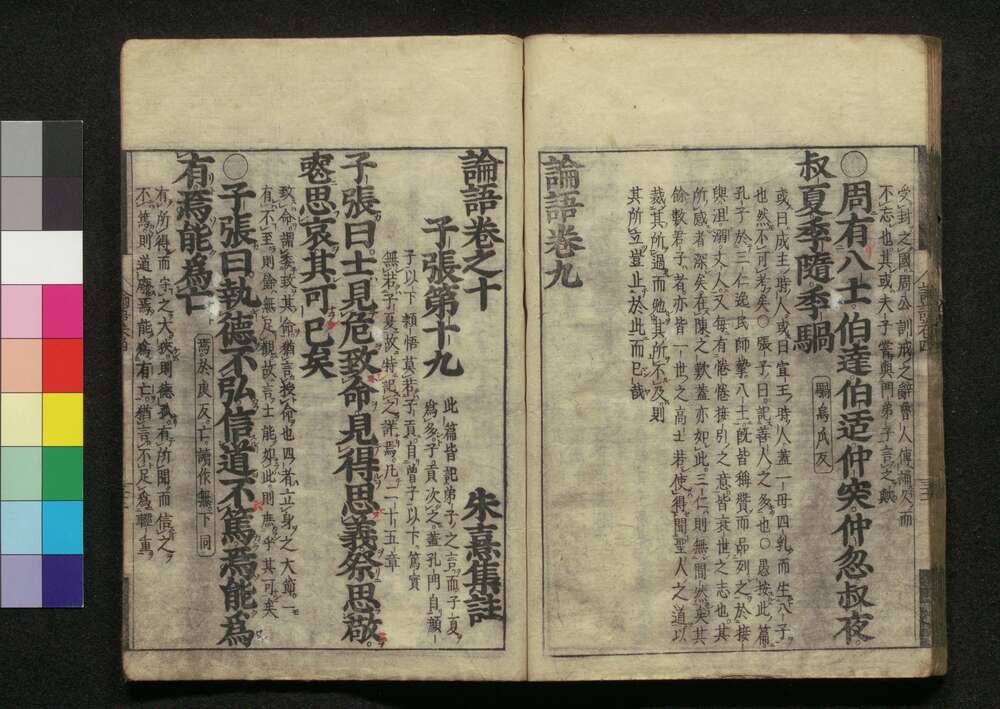 受封之國周公訓戒之辭魯人傳誦久而
不忘也其或夫子嘗與門弟子言之歟
周有八士伯達伯适仲突仲忽叔夜
叔夏季隨季騧
騧烏瓜反
或曰成王時人或曰宣王時人蓋一母四乳而生八子
也然不可考矣○張子曰記善人之多也○愚按此篇
孔子於三仁逸民師摯八士旣皆稱贊而品列之於接
輿沮溺丈人又每有惓惓接引之意皆衰世之志也其
所感者深矣在陳之歎蓋亦如此三仁則無間然矣其
餘數君子者亦皆一世之高士若使得聞聖人之道以
裁其所過而勉其所不及則
其所立豈止於此而已哉
論語卷九
論語卷之十
朱熹集註
子張第十九
此篇皆記弟子之言而子夏
爲多子貢次之蓋孔門自顏
子以下穎悟莫若子貢自曾子以下篤實
無若子夏故特記之詳焉凡二十五章
子張曰士見危致命見得思義祭思敬
喪思哀其可已矣
致命謂委致其命猶言授命也四者立身之大節一
有不至則餘無足觀故言士能如此則庶乎其可矣
子張曰執德不弘信道不篤焉能爲
有焉能爲亡
焉於虔反亡讀作無下同
有所得而守之太狹則德孤有所聞而信之
不篤則道廢焉能爲有亡猶言不足爲輕重